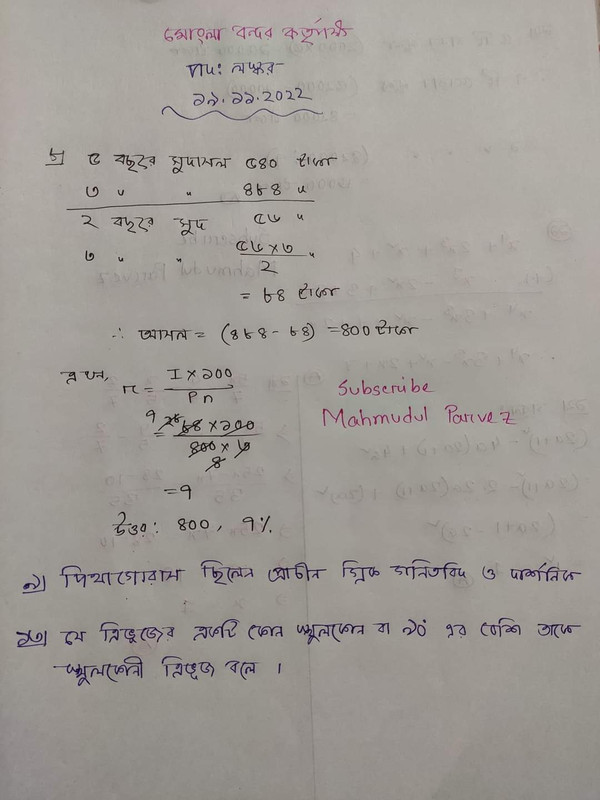 মোংলা বন্দর কর্তৃপক্ষ
পদ: লস্কর
১৯.১১.2022
৮) ৫ বছরে সুদাসল ৫৪০ টাকা
৩ " " ৪৮৪ "
২ বছরে সুদ ৫৬ "
৩ " " ৫৬×৩/২ "
= ৮৪ টাকা
∴ আসল = (৪৮৪-৮৪) =৪০০ টাকা
এখন, r = I×১০০/Pn
৭ ২৮ ৮৪×১০০/৪০০×৩ ৪
=৭
উত্তর: ৪০০, ৭%
Subscribe
Mahmudul Parvez
৯) পিথাগোরাস ছিলেন প্রাচীন গ্রিক গনিতবিদ ও দার্শনিক
১৩) যে ত্রিভুজের একটি কোন স্থুলকোন বা ৯০° এর বেশি তাকে
স্থুলকোনী ত্রিভুজ বলে ।